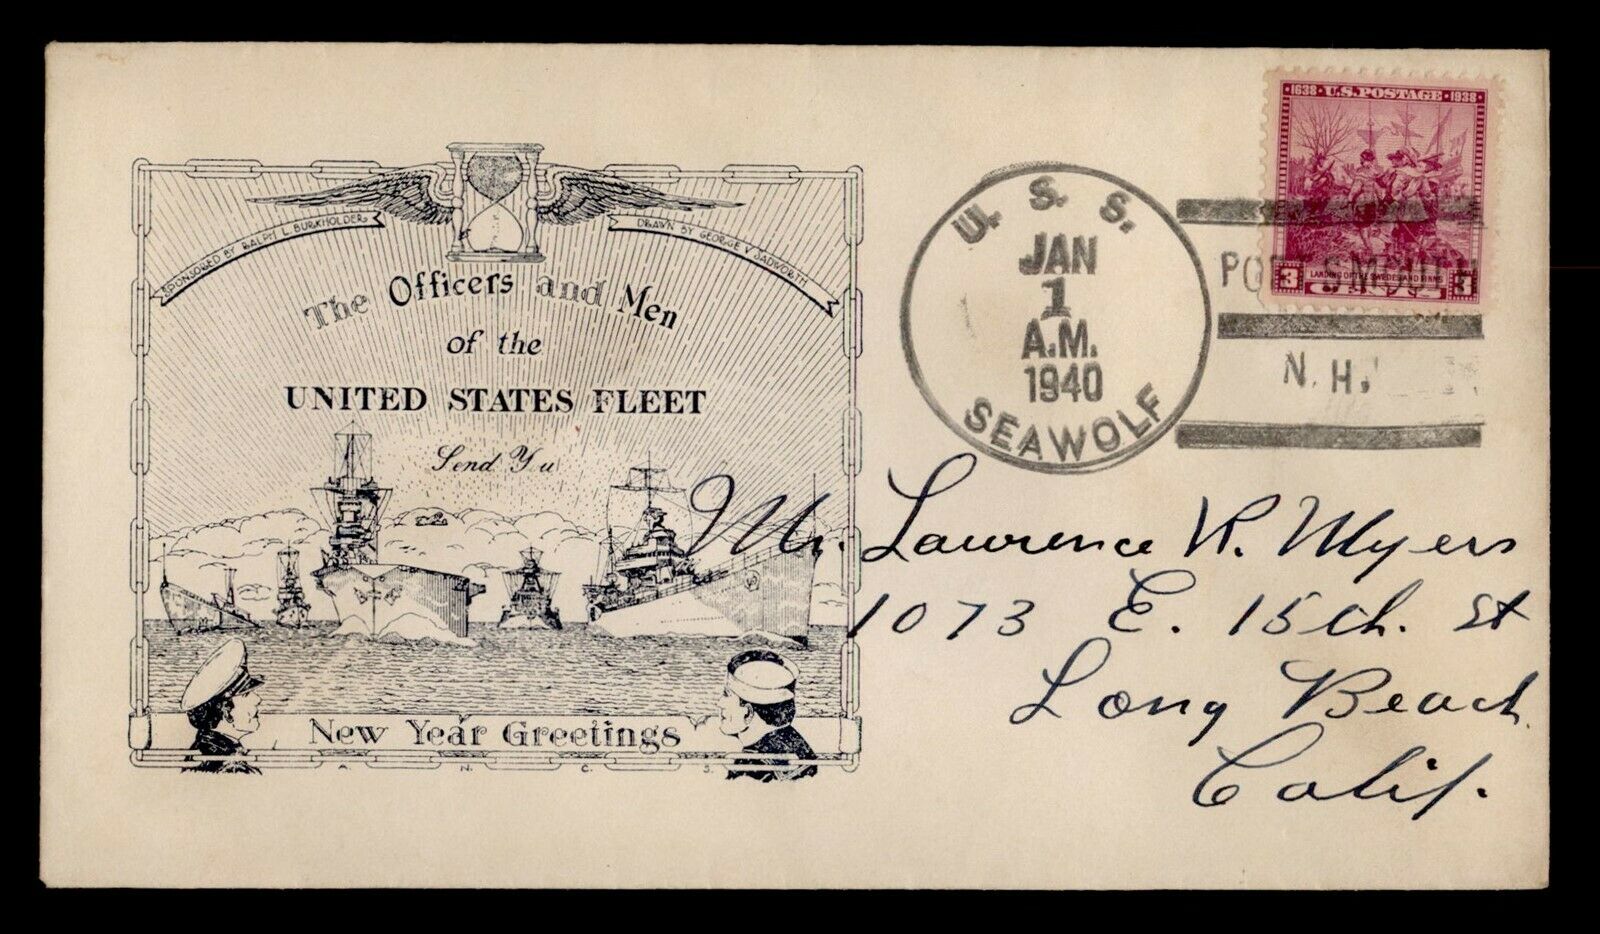 SPONSORED BY RALPH L. BURKHOLDER
DRAWN BY GEORGE V. SADWORTH
The Officers and Men
of the
UNITED STATES FLEET
Send Y u
New Year Greetings
A. N. C. S.
U. S. S.
JAN
1
A.M.
1940
SEAWOLF
PORTSMOUTH
N.H.
1638 · U.S. POSTAGE · 1938
LANDING OF THE SWEDES AND FINNS
3 CENTS 3
Mr. Lawrence R. Myers
1073 E. 15th. St
Long Beach
Calif.